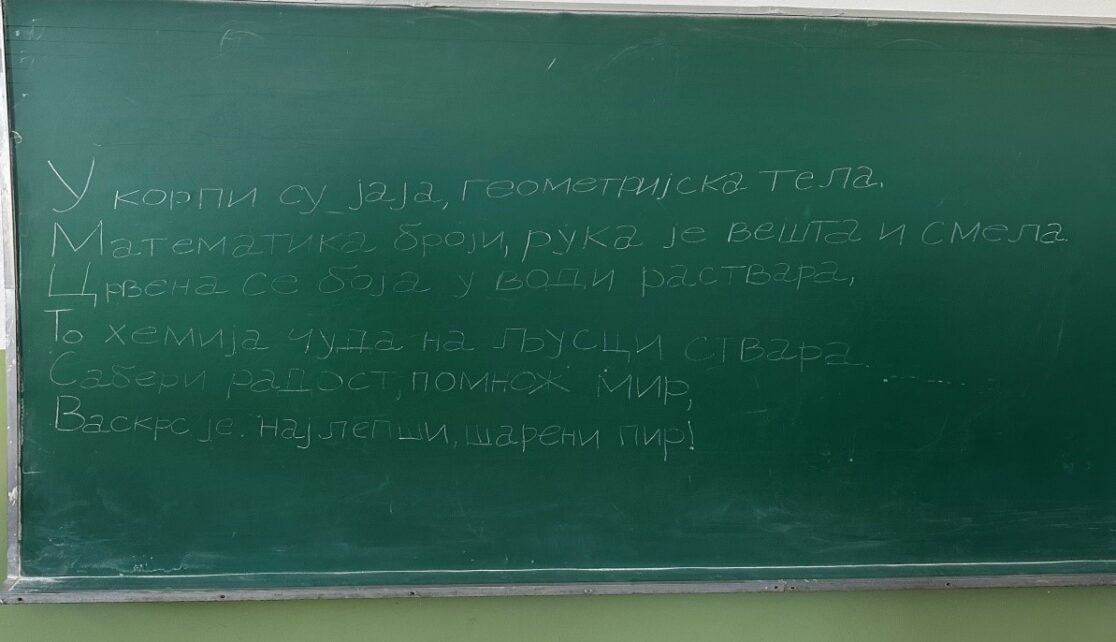 У корпи су јаја, геометријска тела.
Математика броји, рука је вешта и смела.
Црвена се боја у води раствара,
То хемија чуда на љусци ствара.
Сабери радост, помнож мир,
Васкрс је најлепши, шарени пир!